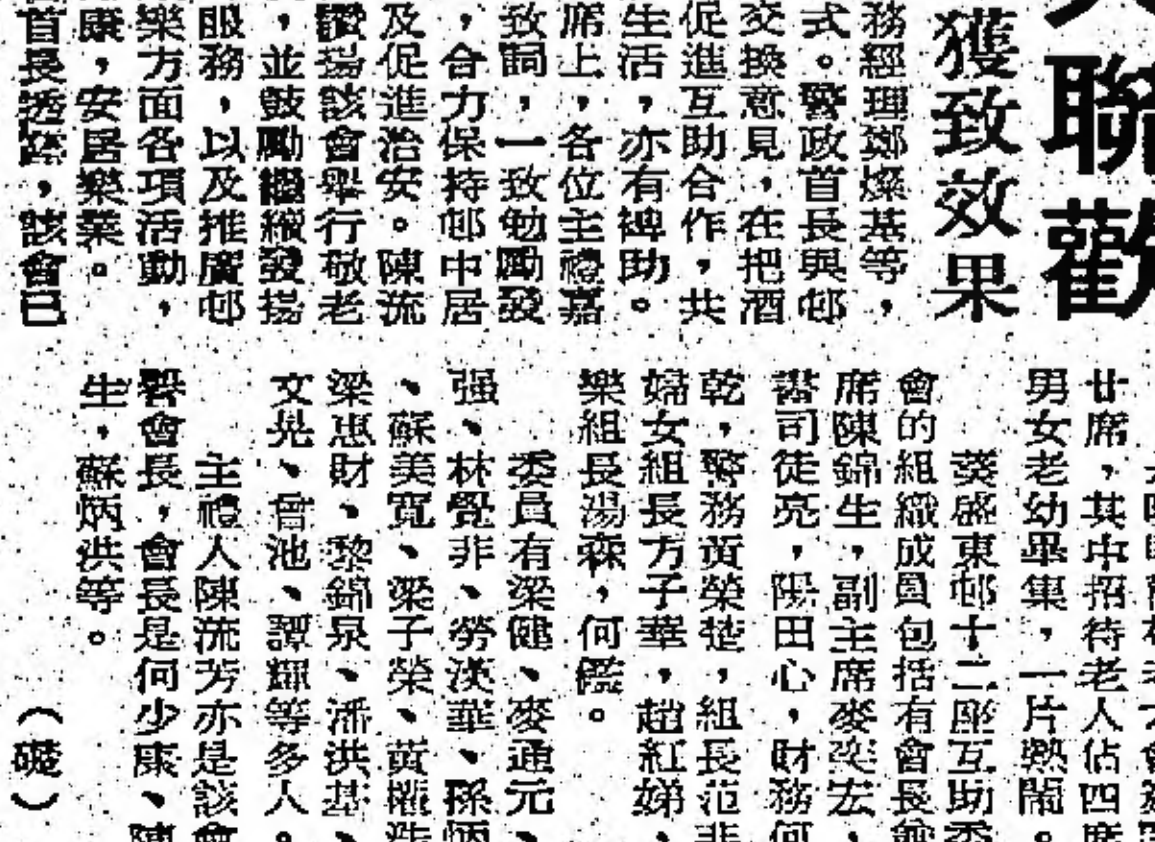 聯歡
獲致效果
務經理鄭燦基等，
式。警政首長與邨
交換意見，在把酒
促進互助合作，共
生活，亦有裨助。
席上，各位主禮嘉
致詞，一致勉勵發
，合力保持邨中居
及促進治安。陳流
讚揚該會舉行敬老
，並鼓勵繼續發揚
服務，以及推廣邨
樂方面各項活動，
康，安居樂業。
首長透露，該會已
廿席，其中招待老人佔四席
男女老幼畢集，一片熱鬧。
葵盛東邨十二座互助委
會的組織成員包括有會長
席陳錦生，副主席麥奕宏，
司徒亮，陽田心，財務何
乾，警務黃榮楚，組長范非
婦女組長方子華，趙紅娣、
樂組長湯森，何鑑。
委員有梁健、麥通元、
强、林覺非、勞漢華、孫炳
、蘇美寬、梁子榮、黃權浩
梁惠財、黎錦泉、潘洪基、
文晃、曾池、譚輝等多人。
主禮人陳流芳亦是該會
譽會長，會長是何少康、陳
生，蘇炳洪等。
（礎）